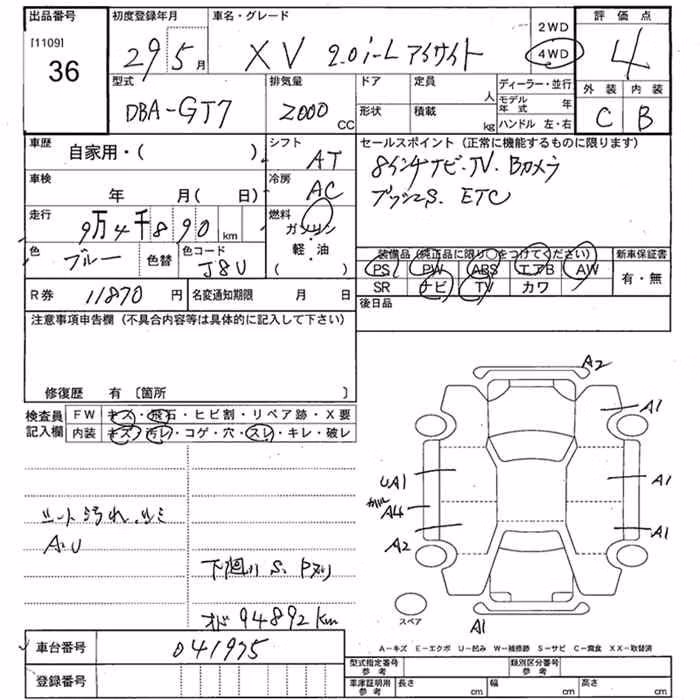 出品番号
[1109]
36
初度登録年月
29 5月
車名・グレード
XV 2.0i-L アイサイト
2WD
4WD
評価点
4
外装 内装
C B
型式
DBA-GT7
排気量
2000 CC
ドア
定員
人
形状
積載
kg
ディーラー・並行
モデル年式 年
ハンドル 左・右
車歴
自家用・( )
シフト
AT
セールスポイント (正常に機能するものに限ります)
8インチナビ・TV・Bカメラ
プッシュS. ETC
車検
年 月( 日)
冷房
AC
走行
9万4千890 km
燃料
ガソリン
・
軽・油
( )
色
ブルー
色替
色コード
J8U
装備品 (純正品に限り○をつけてください)
新車保証書
PS PW ABS エアB AW
有・無
SR ナビ TV カワ
後日品
R券 11870 円
名変通知期限 月 日
注意事項申告欄 (不具合内容等は具体的に記入して下さい)
修復歴 有 〔箇所 〕
検査員記入欄
FW キズ・飛石・ヒビ割・リペア跡・X要
内装 キズ・汚レ・コゲ・穴・スレ・キレ・破レ
シート汚れ、シミ
A.U
下廻り S. Pヌリ
オド 94892km
A2
A1
UA1
A1
A4
A2
A1
A1
スペア
A-キズ E-エクボ U-凹み W-補修跡 S-サビ C-腐食 XX-取替済
車台番号
041975
登録番号
型式指定番号 参考
類別区分番号 参考
車庫証明用 参考
長さ cm
幅 cm
高さ cm